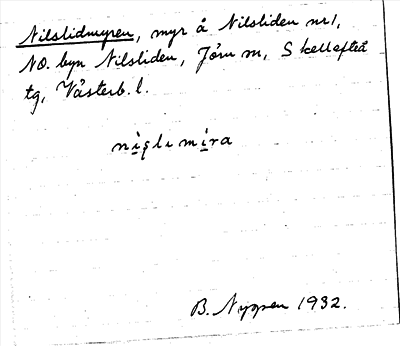 Nilslidmyren, myr å Nilsliden nr 1,
NO. byn Nilsliden, Jörn sn, Skellefteå
tg, Västerb. l.
nìsḷımı̀ra
B. Nyssen 1932.